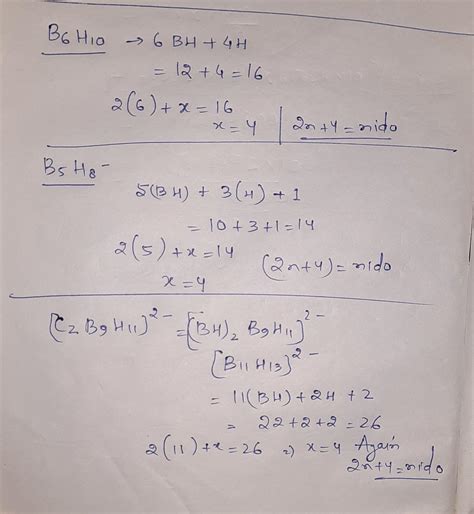 B₆H₁₀ → 6 BH + 4H
= 12 + 4 = 16
2(6) + x = 16
x = 4 | 2n+4 = nido
B₅H₈⁻
5(BH) + 3(H) + 1
= 10 + 3 + 1 = 14
2(5) + x = 14
x = 4 (2n+4) = nido
[C₂B₉H₁₁]²⁻ = [(BH)₂ B₉H₁₁]²⁻
[B₁₁H₁₃]²⁻
= 11(BH) + 2H + 2
= 22 + 2 + 2 = 26
2(11) + x = 26 => x = 4 Again
2n+4 = nido